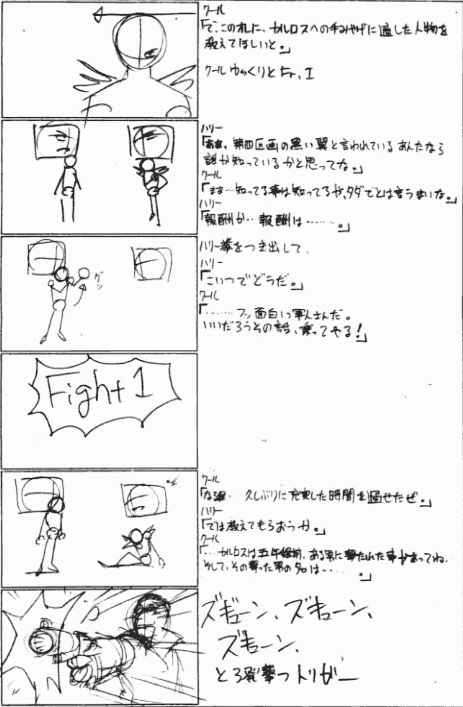 クール
「で、この俺に、カルロスへの手みやげに適した人物を
教えてほしいと。」
クール ゆっくりと Fr.I
ハリー
「ああ。第四区画の黒い翼と言われているあんたなら
誰か知っているかと思ってな。」
クール
「まあ…知ってる事は知ってるが、タダでとは言うまいな。」
ハリー
「報酬か…報酬は………。」
ハリー拳をつき出して、
ハリー
「こいつでどうだ。」
クール
「………フッ面白い軍人さんだ。
いいだろうその話、乗ってやる!」
グッ
Fight 1
クール
久しぶりに充実した時間を過せたぜ。」
ハリー
「では教えてもらおうか。」
クール
「…カルロスは五年程前、ある男に撃たれた事があってね、
そして、その撃った男の名は……。」
ズギューン、ズギューン、
ズギューン、
と3発撃つ